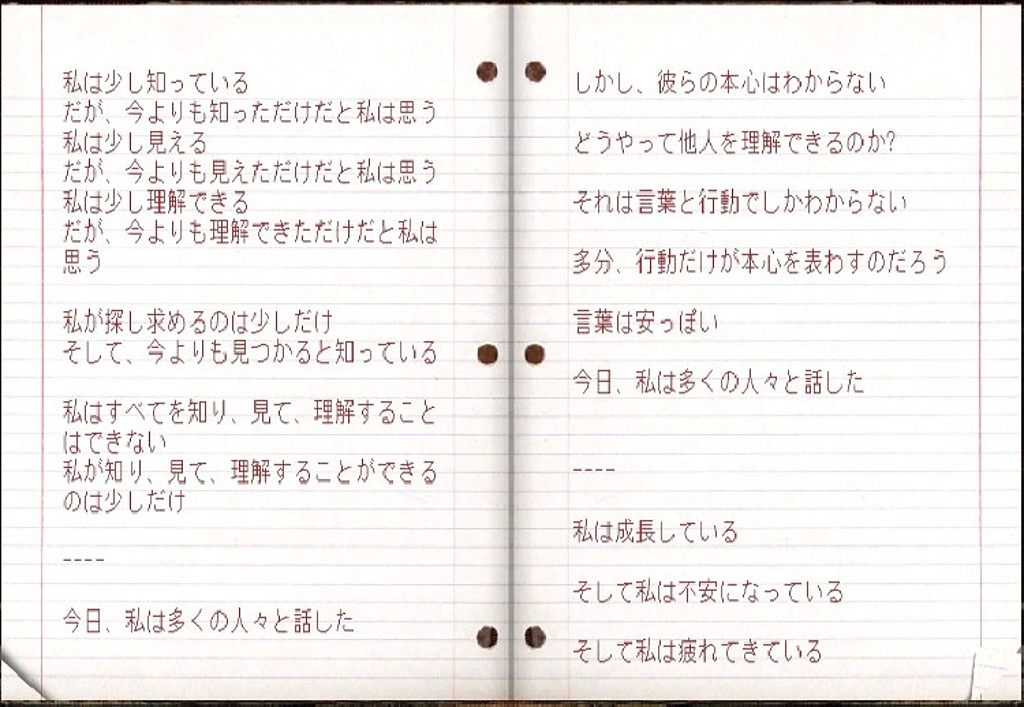 私は少し知っている
だが、今よりも知っただけだと私は思う
私は少し見える
だが、今よりも見えただけだと私は思う
私は少し理解できる
だが、今よりも理解できただけだと私は
思う
私が探し求めるのは少しだけ
そして、今よりも見つかると知っている
私はすべてを知り、見て、理解すること
はできない
私が知り、見て、理解することができる
のは少しだけ
----
今日、私は多くの人々と話した
しかし、彼らの本心はわからない
どうやって他人を理解できるのか?
それは言葉と行動でしかわからない
多分、行動だけが本心を表わすのだろう
言葉は安っぽい
今日、私は多くの人々と話した
----
私は成長している
そして私は不安になっている
そして私は疲れてきている